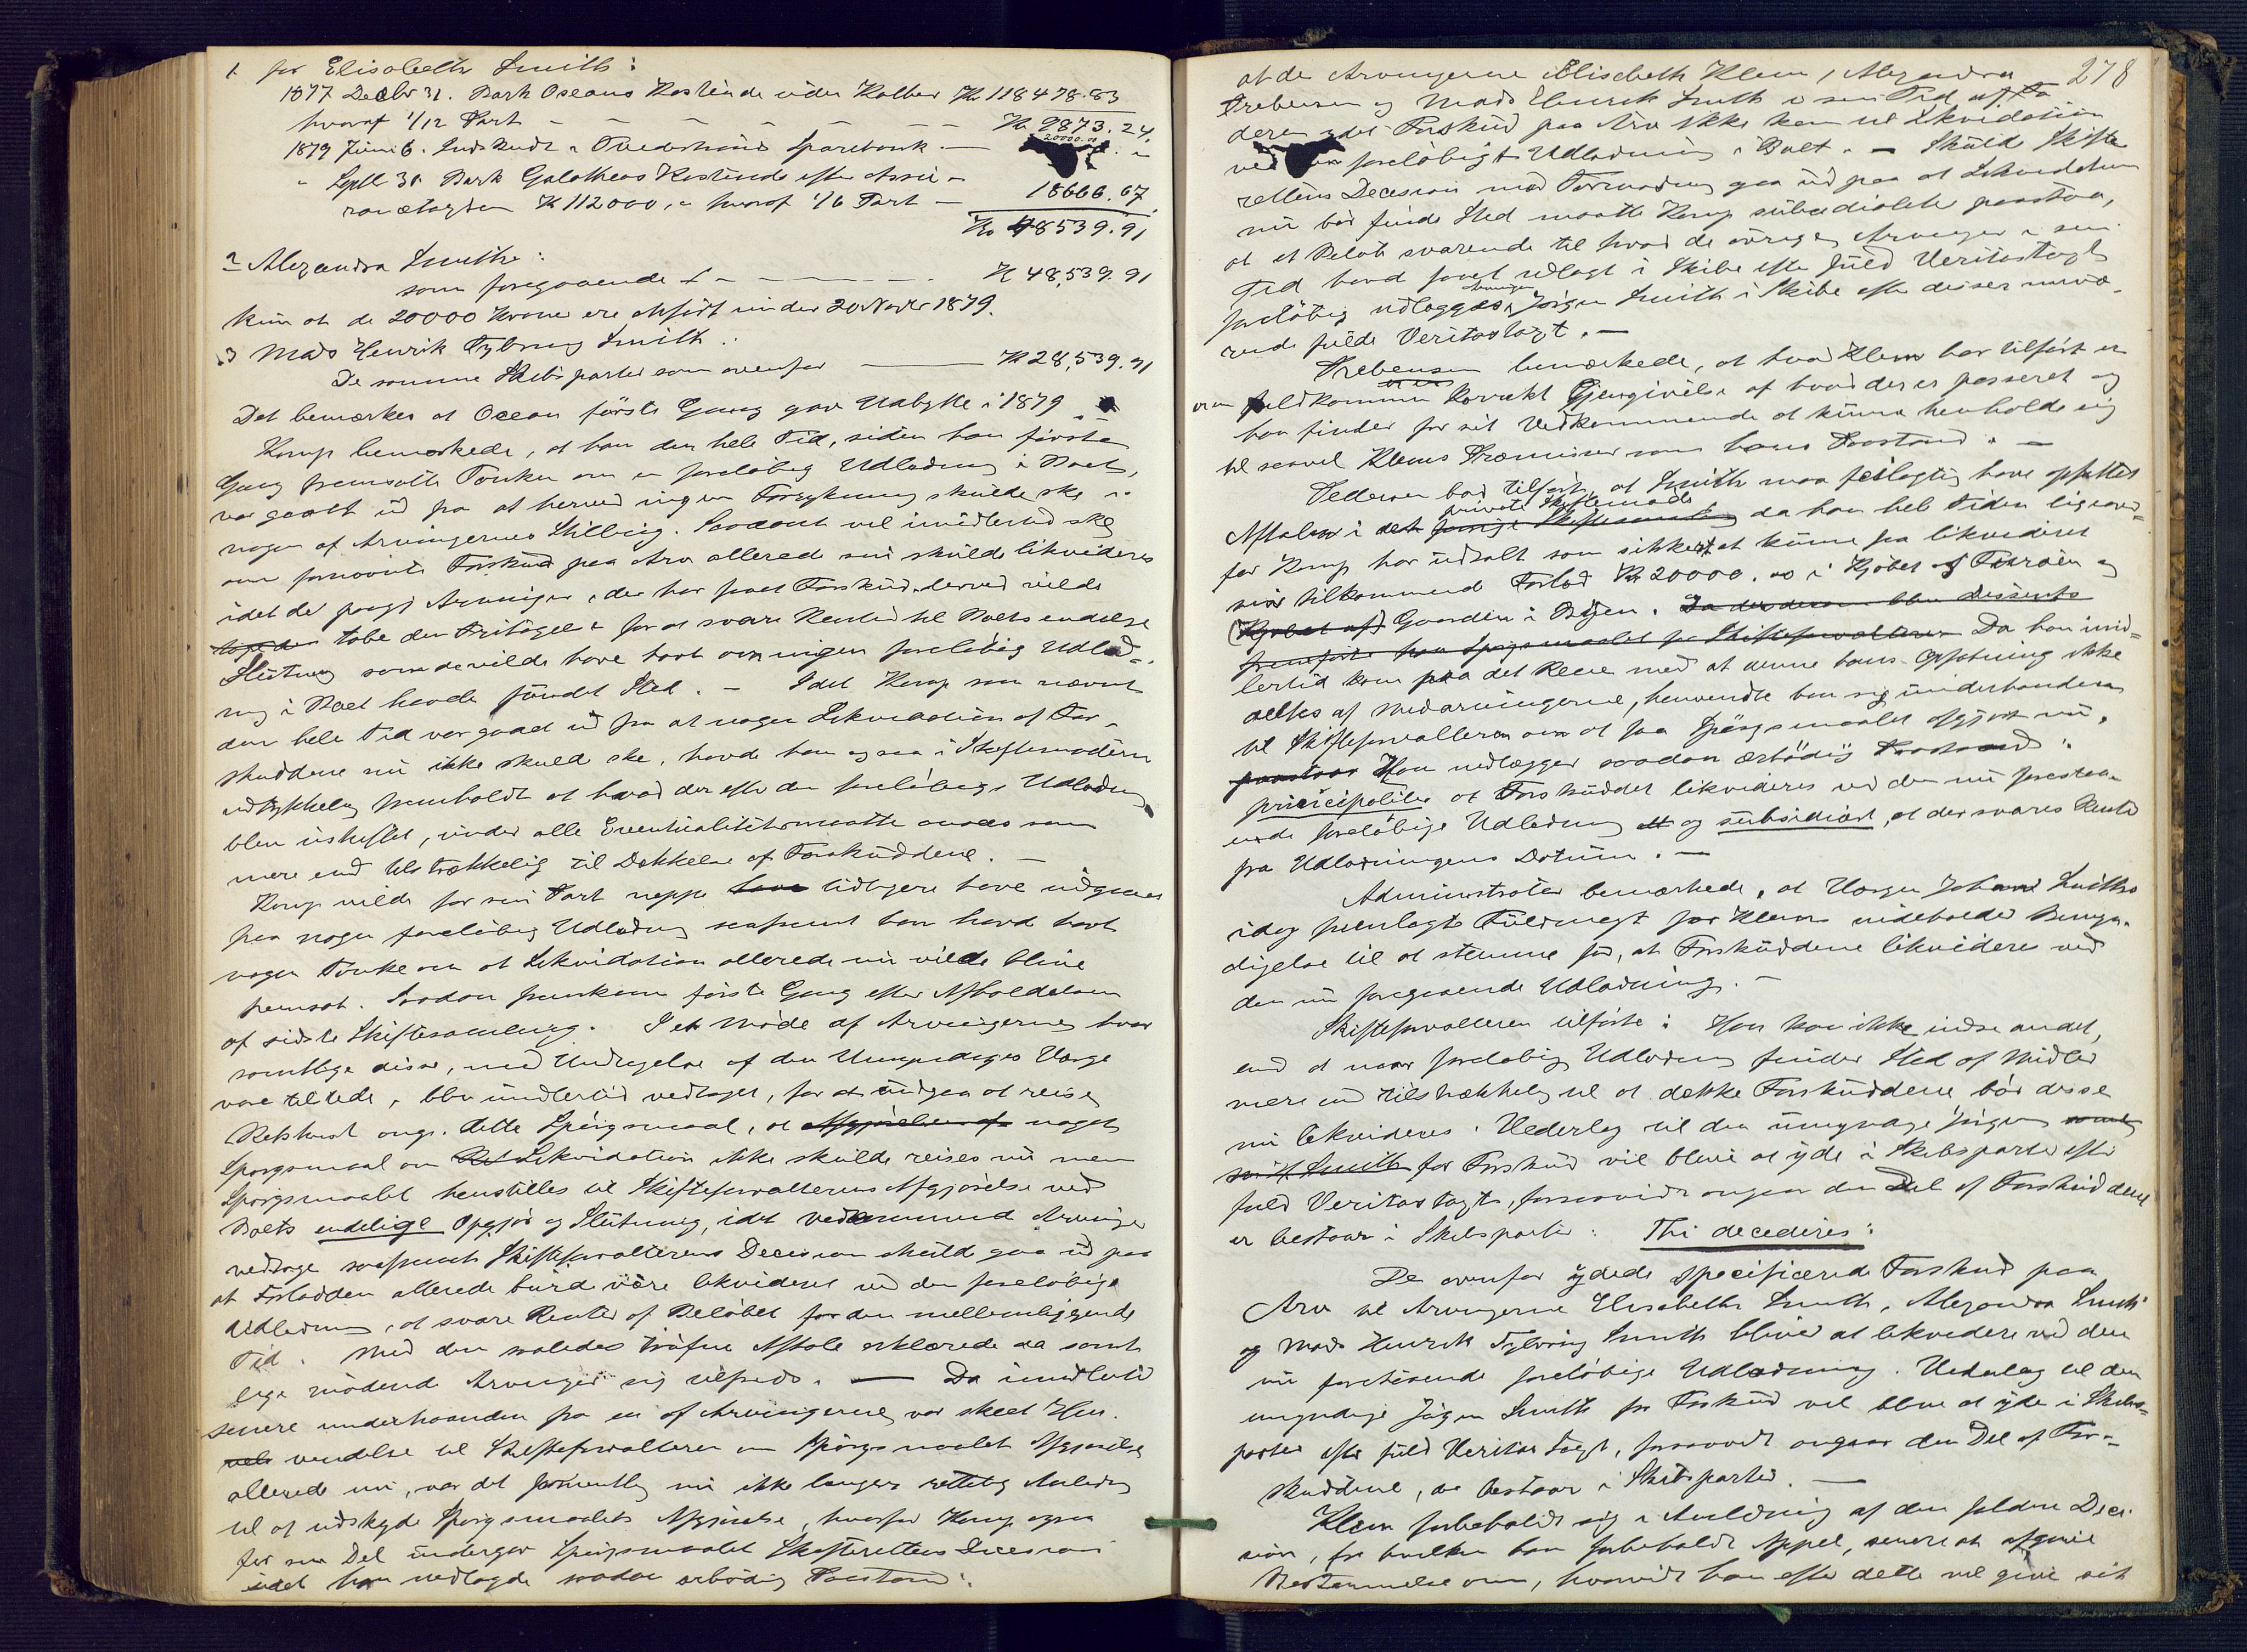 1. for Elisabeth Smith:
1877 Decbr 31. Bark Oceans Kostende uden Kobber Kr 118478.83
hvoraf 1/12 Part - - - - - - Kr 9873.24.
1879 Juni 6. Indskudt i Tvedestrands Sparebank - 20000.00
" Septb 30 Bark Galatheas Kostende efter Assu-
rancetaxten Kr 112000, " hvoraf 1/6 Part - 18666.67.
Kr 48539.91
2 Alexandra Smith:
som foregaaende - - - - Kr 48,539.91
kun at de 20000 Kroner ere opført under 20 Novbr 1879.
3 Mads Henrik Fybring Smith:
De samme Skibsparter som ovenfor - Kr 28,539.91
Det bemærkes at Ocean første Gang gav Udbytte i 1879. -
Kamp bemærkede, at han den hele Tid, siden han første
Gang fremsatte Tanken om en foreløbig Udlodning i Boet,
var gaaet ud fra at herved ingen Forrykning skulde ske i
nogen af Arvingernes Stilling. Saadant vil imidlertid ske
om fornævnte Forskud paa Arv allerede nu skulde likvideres
idet de Arvinger, der har faaet Forskud derved vilde
tabe den Fritagelse for at svare Renter til Boets endelige
Slutning som de vilde have havt om ingen foreløbig Udlod-
ning i Boet havde fundet Sted. - Idet Kamp som nævnt
den hele Tid var gaaet ud fra at nogen Likvidation af For-
skuddene nu ikke skulde ske, havde han ogsaa i Skiftemøderne
udtrykkelig fremholdt at hvad der efter den foreløbige Udlodning
blev uskiftet, under alle Eventualiteter maatte ansees som
mere end tilstrækkelig til Dækkelse af Forskuddene. -
Kamp vilde for sin Part neppe have tidligere have indgaaet
paa nogen foreløbig Udlodning saafremt han havde havt
nogen Tanke om at Likvidation allerede nu vilde blive
fremsat. Saadan fremkom første Gang efter Afholdelsen
af sidste Skiftesamling. I et Møde af Arvingerne hvor
samtlige disse, med Undtagelse af den Umyndiges Værge
vare tilstede, blev imidlertid vedtaget, for at undgaa at reise
Retstvist ang. dette Spørgsmaal, at Afgjørelsen af noget
Spørgsmaal om Likvidation ikke skulde reises nu men
Spørgsmaalet henstilles til Skifteforvalterens Afgjørelse ved
Boets endelige Opgjør og Slutning, idet vedkommende Arvinger
vedtoge saafremt Skifteforvalterens Decision skulde gaa ud paa
at Forlodden allerede burde være likvideret ved den foreløbige
Udlodning, at svare Renter af Beløbet for den mellemliggende
Tid. Med den saaledes trufne Aftale erklærede da samt-
lige mødende Arvinger sig tilfreds. - Da imidlertid
senere underhaanden fra en af Arvingerne var skeet Hen-
vendelse til Skifteforvalteren om Spørgsmaalets Afgjørelse
allerede nu, var det formentlig nu ikke længere rettelig Anledning
til at udskyde Spørgsmaalets Afgjørelse, hvorfor Kamp ogsaa
for sin Del undergav Spørgsmaalet Skifterettens Decision
idet han nedlagde saadan ærbødig Paastand:
278
at de Arvingerne Elisabeth Klem, Alexandra
Trebensen og Mads Henrik Smith i sin Tid
Forskud paa Arv ikke kan til Likvidation
ved foreløbigt Udlodning i Boet. - Skulde Skifte
rettens Decision mod Formodning gaa ud paa at Likvidation
nu bør finde Sted maatte Kamp subsidialiter paastaa,
at et Beløb svarende til hvad de øvrige Arvinger i sin
Tid havde faaet udlagt i Skibe efter fuld Veritastaxt
foreløbig udlægges Jørgen Smith i Skibe efter disses nuvæ-
rende fulde Veritastaxt. -
Trebensen bemærkede, at hvad Klem har tilført er
en fuldkommen korrekt Gjengivelse af hvad der er passeret og
han finder for sit Vedkommende at kunne henholde sig
til saavel Klems Præmisser som hans Paastand. -
Pedersen bad tilført, at Smith maa feilagtig have opfattet
Aftalen i det forrige Skiftesamling private Skiftemøde da han hele Tiden ligeover-
for Kamp har udtalt som sikkert at kunne faa likvideret
sin tilkommende Forlod Kr 20000.00 i Kjøbet af Furøen og
(Kjøbet af) Gaarden i Byen. Da der derom blev Dissents
Spørgsmaalet for Skifteforvalteren Da han imid-
lertid kom paa det Rene med at denne hans Opfatning ikke
deltes af Medarvingerne, henvendte han sig underhaanden
til Skifteforvalteren om at faa Spørgsmaalet afgjort nu.
paastaar Han nedlægger saadan ærbødig Paastand:
principaliter at Forskuddet likvideres ved den nu forestaa-
ende foreløbige Udlodning og subsidiært, at der svares Rente
fra Udlodningens Datum. -
Administrator bemærkede, at Værgen Johan Smiths
idag fremlagte Fuldmagt for Klem indeholder Bemyn-
digelse til at stemme for, at Forskuddene likvideres ved
den nu foregaaende Udlodning. -
Skifteforvalteren tilførte: Han kan ikke indse andet,
end at naar foreløbig Udlodning finder Sted af Midler
mere end tilstrækkelig til at dække Forskuddene bør disse
nu likvideres. Vederlag til den umyndige Jørgen
Smith for Forskud vil blive at yde i Skibsparter efter
fuld Veritas taxt, forsaavidt angaar den Del af Forskuddene
er bestaar i Skibsparter: Thi decideres:
De ovenfor ydede specificerede Forskud paa
Arv til Arvingerne Elisabeth Smith, Alexandra Smith
og Mads Henrik Fybring Smith bliver at likvidere ved den
nu foretagende foreløbige Udlodning. Vederlag til den
umyndige Jørgen Smith for Forskud vil blive at yde i Skibs-
parter efter fuld Veritas taxt, forsaavidt angaar den Del af For-
skuddene, der bestaar i Skibsparter. -
Klem forbeholdt sig i Anledning af den faldne Deci-
sion, for hvilken han forbeholdt Appel, senere at afgive
Bestemmelse om, hvorvidt han efter dette vil give sit